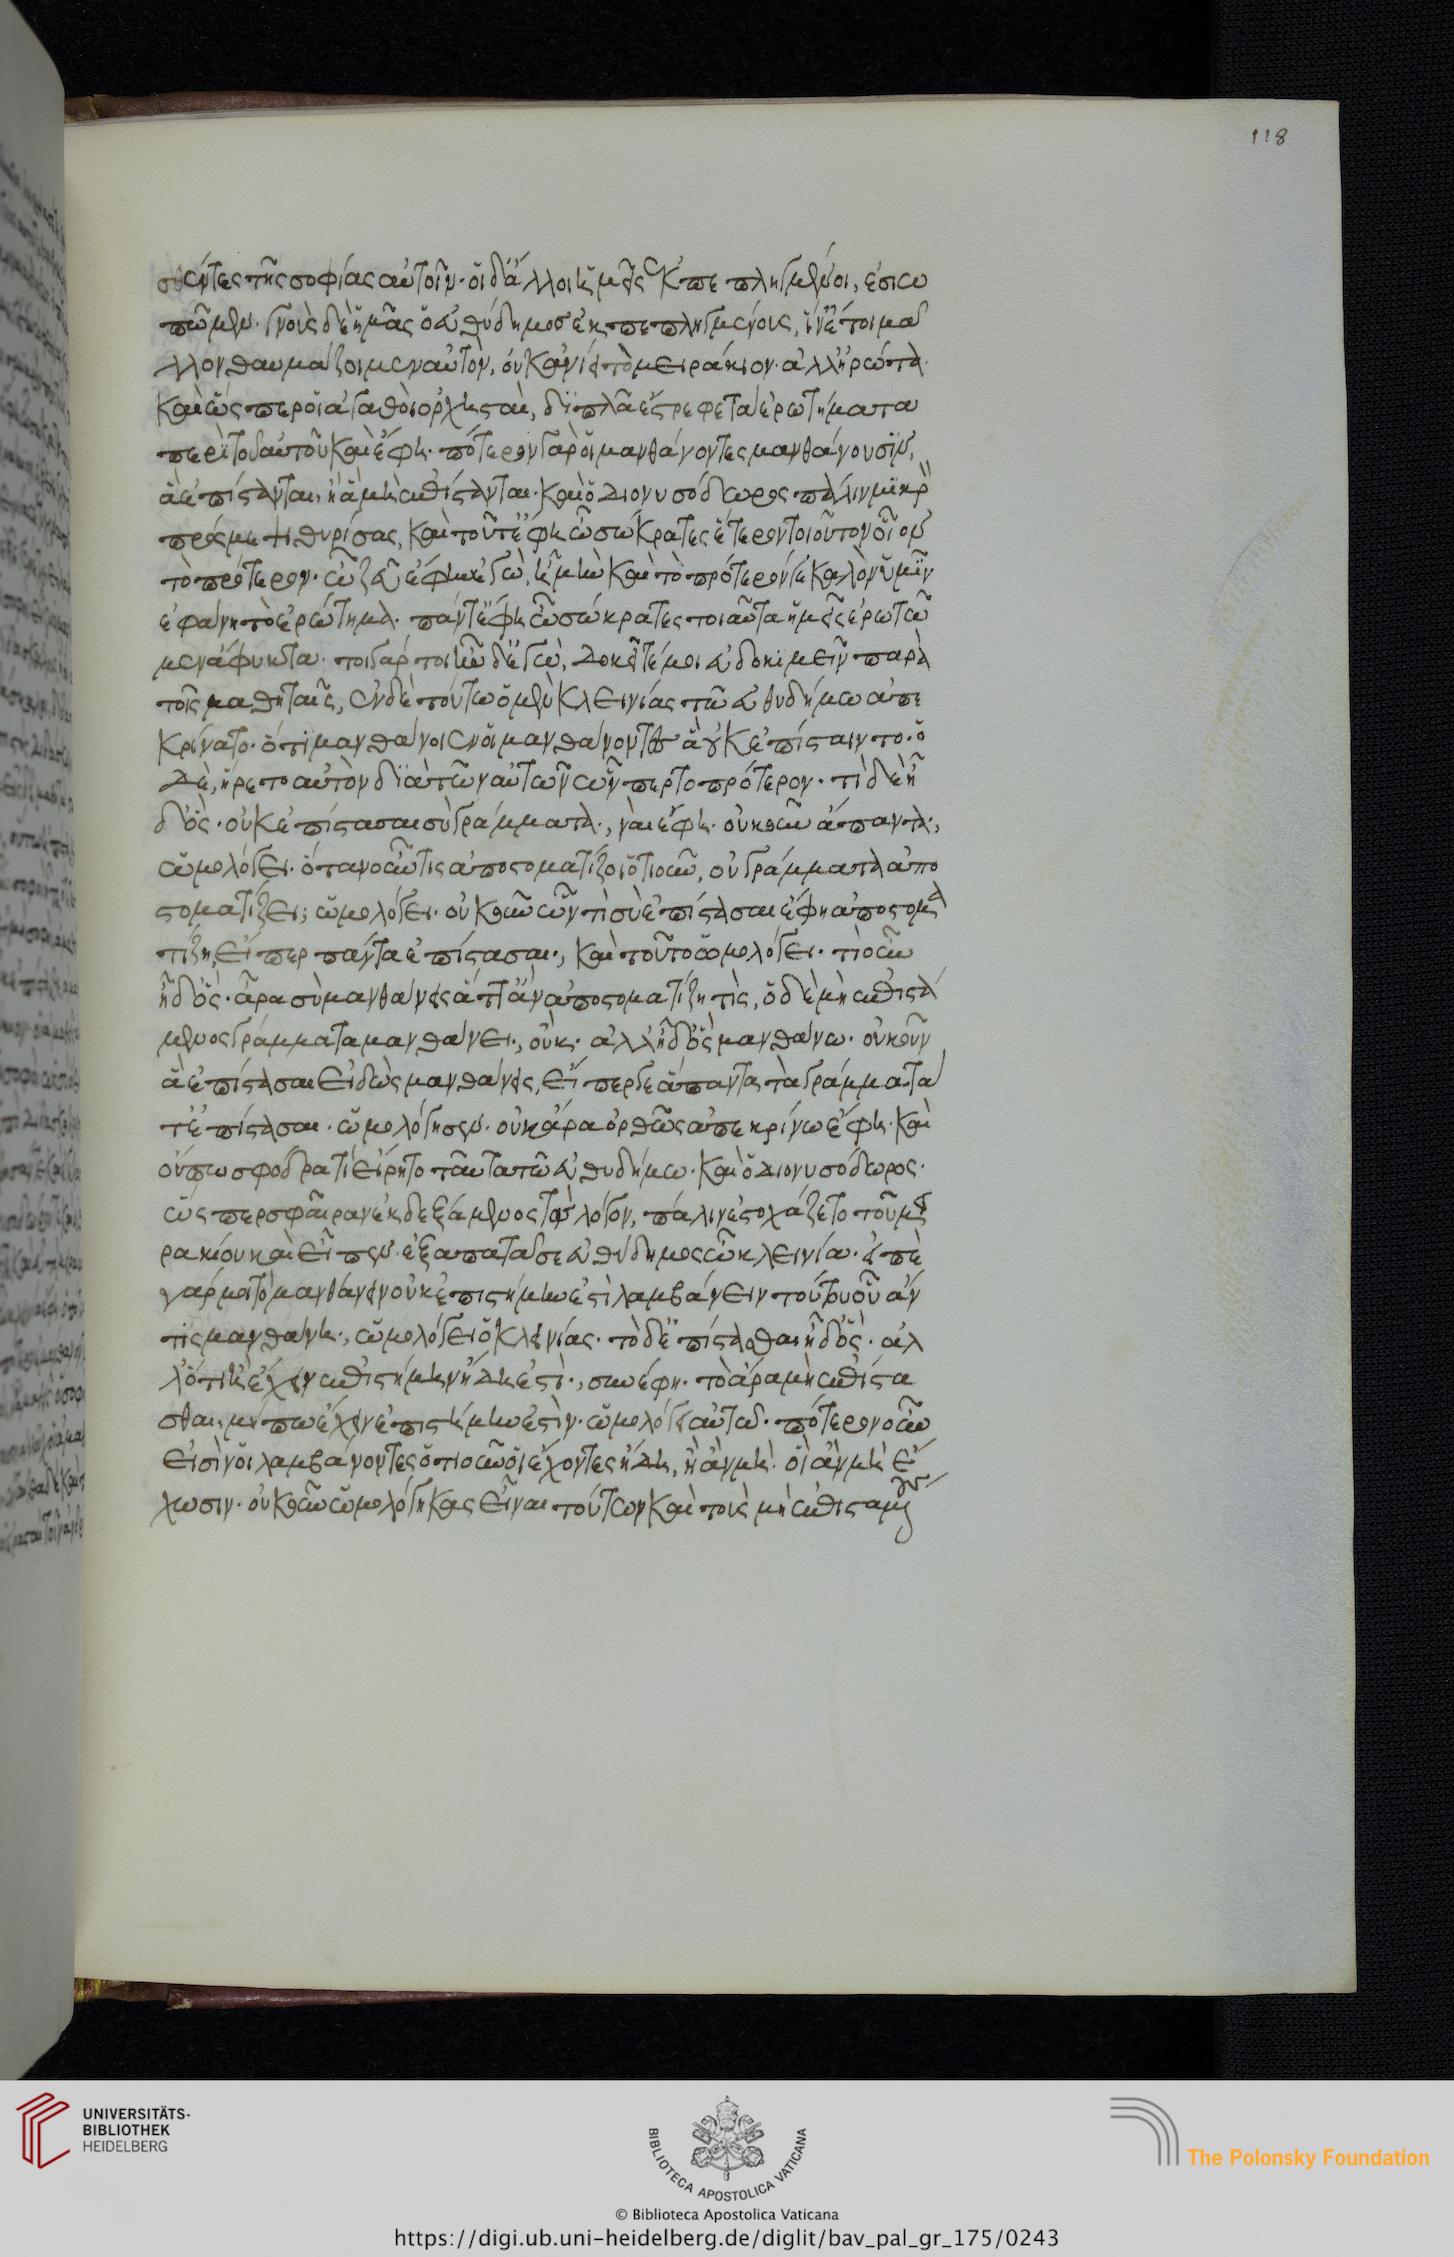 118
σθέντες τῆς σοφίας αὐτοῖν· οἱ δ' ἄλλοι ἡμεῖς ἐκπεπληγμένοι, ἐσιω
πῶμεν· γνοὺς δὲ ἡμᾶς ὁ εὐθύδημος ἐκπεπληγμένους, ἵν' ἔτι μᾶ
λλον θαυμάζοιμεν αὐτὸν, οὐκ ἀνίει τὸ μειράκιον· ἀλλ' ἠρώτα·
καὶ ὥσπερ οἱ ἀγαθοὶ ὀρχησταὶ, διπλᾶ ἔστρεφε τὰ ἐρωτήματα
περὶ τοῦ αὐτοῦ καὶ ἔφη· πότερον γὰρ οἱ μανθάνοντες μανθάνουσιν,
ἃ ἐπίστανται, ἢ ἃ μὴ ἐπίστανται· καὶ ὁ διονυσόδωρος πάλιν μικρὸ
πρός με ψιθυρίσας, καὶ τοῦτ' ἔφη ὦ σώκρατες ἕτερον τοιοῦτον οἷον
τὸ πρότερον· ὦ ζεῦ ἔφην ἐγὼ, ἦ μὴν καὶ τὸ πρότερόν γε καλὸν ὑμῖν
ἐφάνη τὸ ἐρώτημα· πάντ' ἔφη ὦ σώκρατες τοιαῦτα ἡμεῖς ἐρωτῶ
μεν ἄφυκτα· τοιγάρτοι ἦν δ' ἐγὼ, δοκεῖτέ μοι εὐδοκιμεῖν παρὰ
τοῖς μαθηταῖς, ἐν δὲ τούτω ὁ μὲν κλεινίας τῶ εὐθυδήμω ἀπε
κρίνατο· ὅτι μανθάνοιεν οἱ μανθάνοντες ἃ οὐκ ἐπίσταιντο· ὁ
δὲ, ἤρετο αὐτὸν διὰ τῶν αὐτῶν ὧνπερ τὸ πρότερον· τί δὲ ἦ
δ' ὅς· οὐκ ἐπίστασαι σὺ γράμματα·, ναὶ ἔφη· οὐκοῦν ἅπαντα·,
ὡμολόγει· ὅταν οὖν τις ἀποστοματίζοι ὁτιοῦν, οὐ γράμματα ἀπο
στοματίζει; ὡμολόγει· οὐκοῦν ὧν τὶ σὺ ἐπίστασαι ἔφη ἀποστομα
τίζη, εἴπερ πάντα ἐπίστασαι·, καὶ τοῦτο ὡμολόγει· τί οὖν
ἦ δ' ὅς· ἆρα σὺ μανθάνεις ἅττ' ἂν ἀποστοματίζη τὶς, ὁ δὲ μὴ ἐπιστά
μενος γράμματα μανθάνει·, οὐκ· ἀλλ' ἦ δ' ὃς μανθάνω· οὐκοῦν
ἃ ἐπίστασαι εἰδὼς μανθάνεις, εἴπερ γε ἅπαντα τὰ γράμματα
τ' ἐπίστασαι· ὡμολόγησεν· οὐκ ἄρα ὀρθῶς ἀπεκρίνω ἔφη· καὶ
οὔπω σφόδρα τί εἴρητο ταῦτα τῶ εὐθυδήμω· καὶ ὁ διονυσόδωρος·
ὥσπερ σφαῖραν ἐκδεξάμενος τὸν λόγον, πάλιν ἐστοχάζετο τοῦ μει
ρακίου καὶ εἶπεν· ἐξαπατᾶ σε εὐθύδημος ὦ κλεινία· εἰπὲ
γάρ μοι τὸ μανθάνειν οὐκ ἐπιστήμην ἐστὶ λαμβάνειν τούτου οὗ ἄν
τις μανθάνη·, ὡμολόγει ὁ κλεινίας· τὸ δ' ἐπίστασθαι ἦ δ' ὃς· ἀλ
λ' ὅτι ἢ ἔχειν ἐπιστήμην ἤδη ἐστὶ·, συνέφη· τὸ ἄρα μὴ ἐπίστα
σθαι, μήπω ἔχειν ἐπιστήμην ἐστὶν· ὡμολόγει αὐτῶ· πότερον οὖν
εἰσὶν οἱ λαμβάνοντες ὁτιοῦν οἱ ἔχοντες ἤδη, ἢ ἂν μὴ· οἳ ἂν μὴ ἔ
χωσιν· οὐκοῦν ὡμολόγηκας εἶναι τούτων καὶ τοὺς μὴ ἐπισταμένους
UNIVERSITÄTS-
BIBLIOTHEK
HEIDELBERG
BIBLIOTECA APOSTOLICA VATICANA
The Polonsky Foundation
© Biblioteca Apostolica Vaticana
https://digi.ub.uni-heidelberg.de/diglit/bav_pal_gr_175/0243